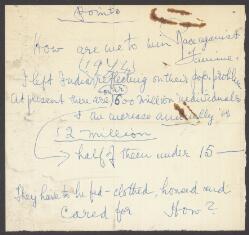 Points
How are we to win Race against
Famine!
(1974)
I left India reflecting on their pop. problem
over
At present there are 600 million individuals
& an increase annually of
12 million
half of them under 15 —
They have to be fed - clothed, housed and
Cared for How?